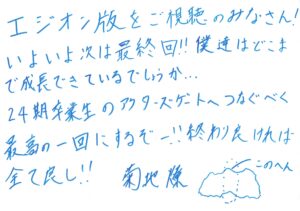 エジオン版をご視聴のみなさん!
いよいよ次は最終回!!僕達はどこま
で成長できているでしょうか…
24期卒業生のアクターズゲートへつなぐべく
最高の一回にするぞー!!終わり良ければ
全て良し!!
菊地 燎
このへん